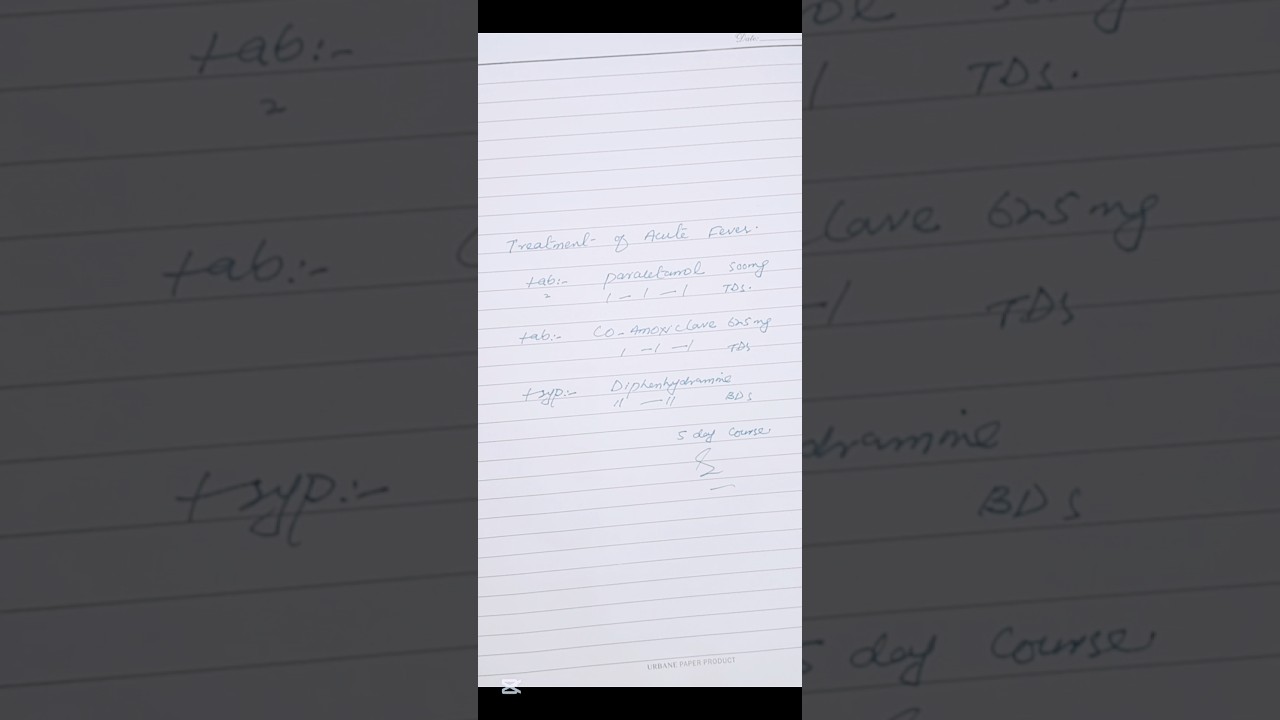 Date
Treatment of Acute Fever.
tab:- paracetamol 500mg
2 1 - 1 - 1 TDS.
tab:- CO-Amoxclave 625mg
1 - 1 - 1 TDS
syp:- Diphenhydramine
11 - 11 BDS
5 day course
URBANE PAPER PRODUCT